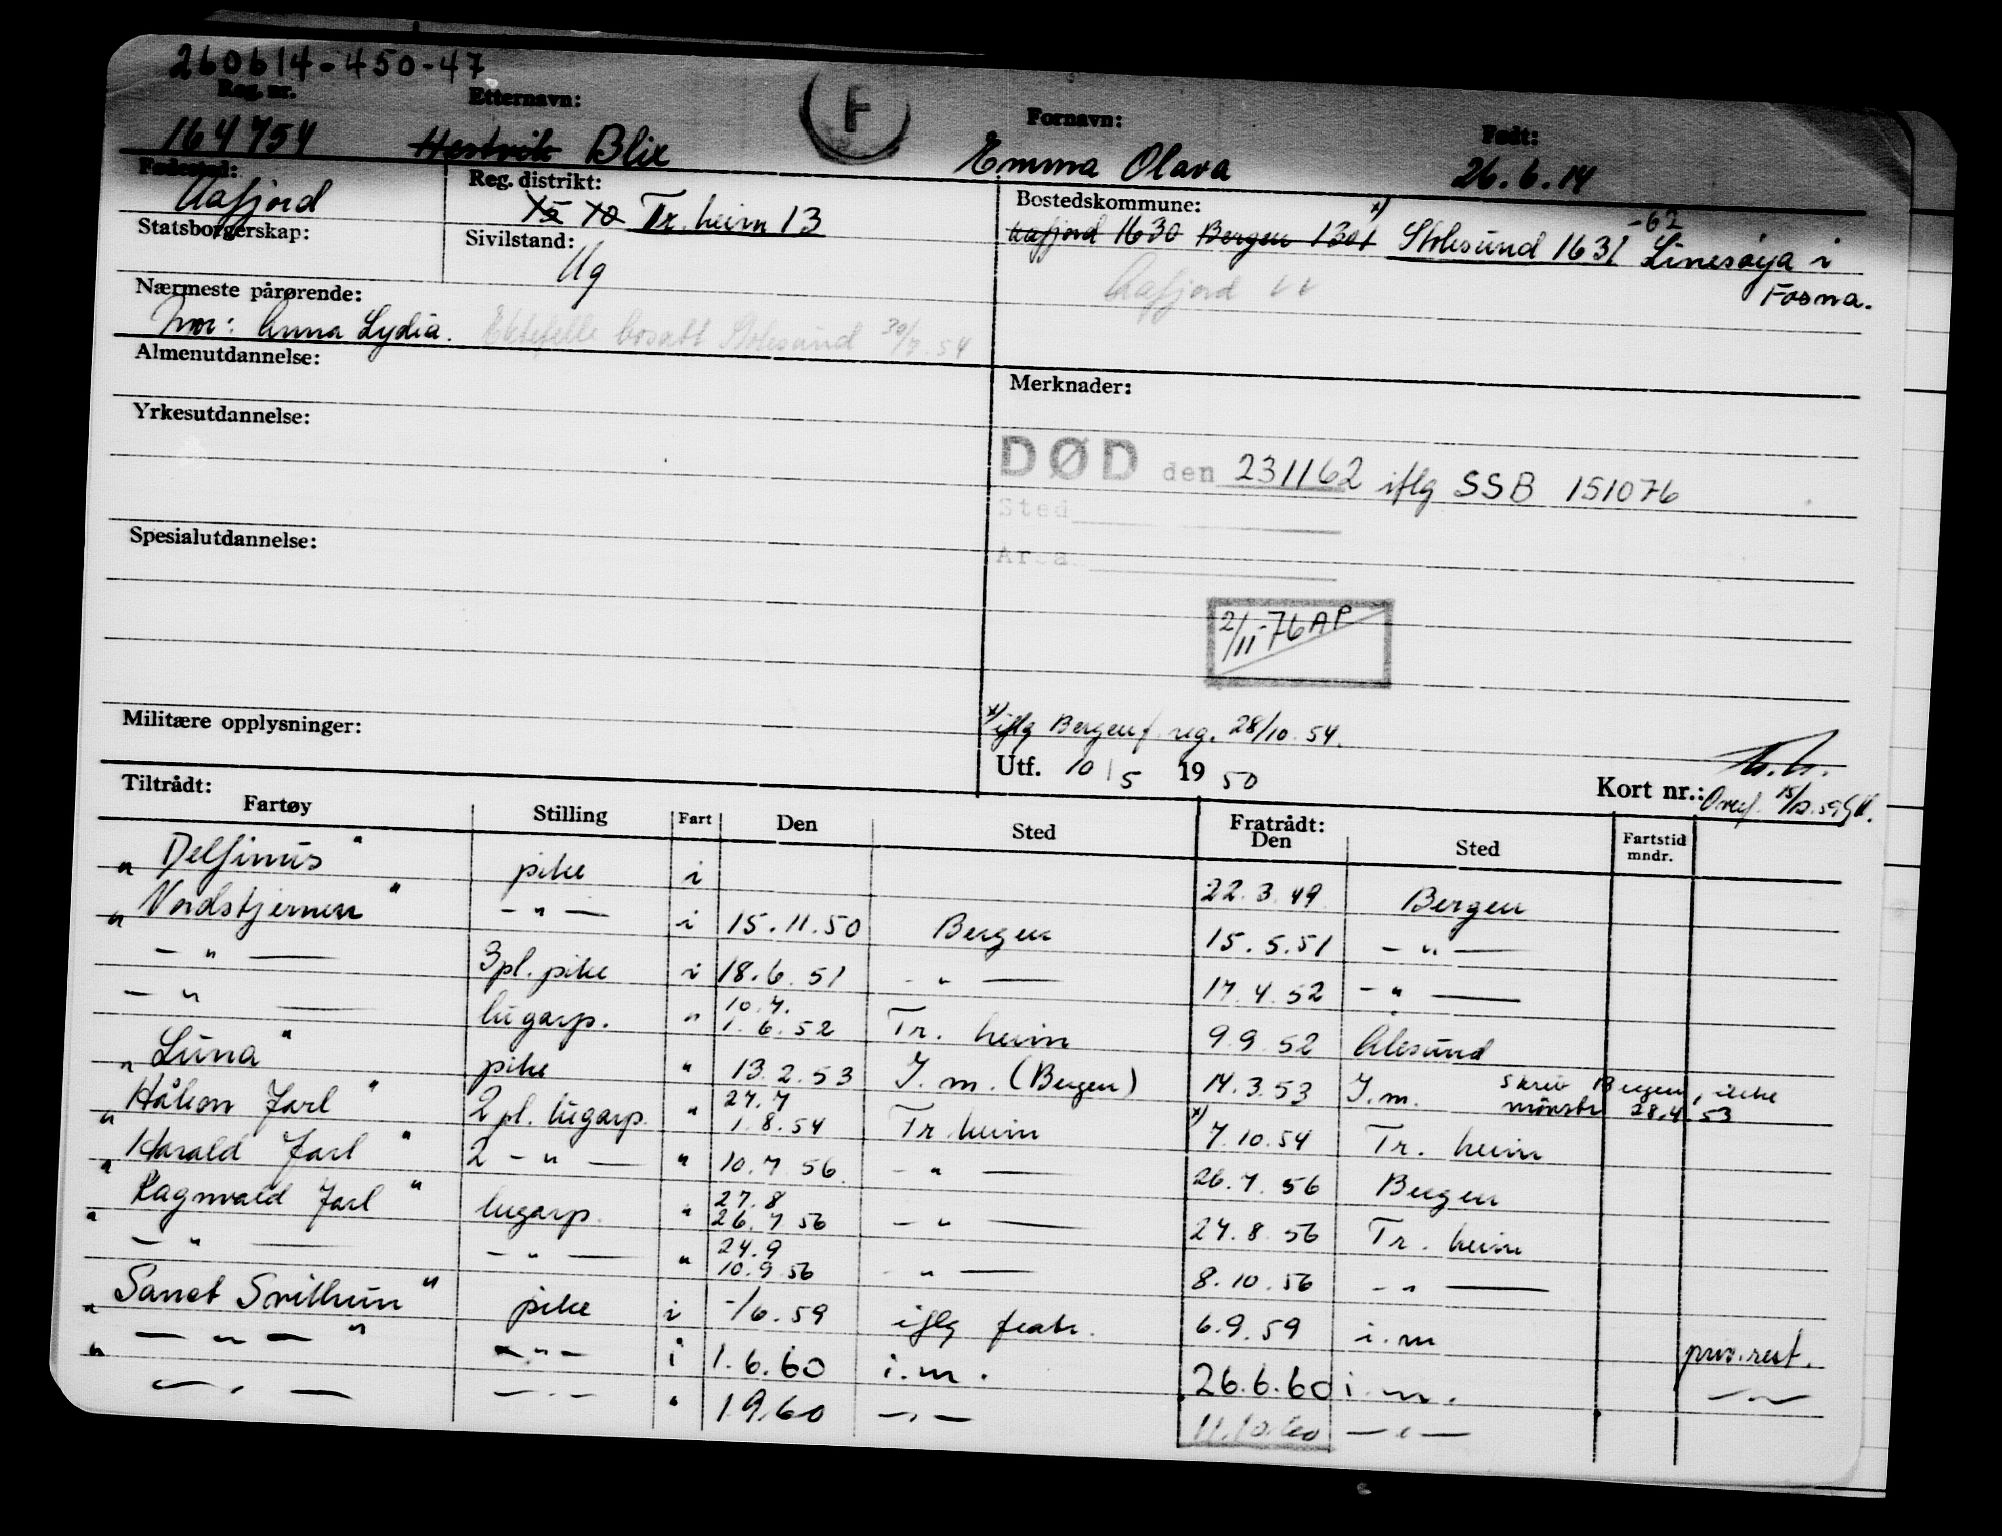 260614-450-47
Reg. nr. Etternavn: F Fornavn: Født:
164754 Hestvik Blix Emma Olava 26.6.14
Fødested: Reg. distrikt: Bostedskommune:
Aafjord 15 10 Tr. heim 13 Aafjord 1630 Bergen 1301 x) Stoksund 1631 -62 Linesøya i Fosna.
Statsborgerskap: Sivilstand:
Ug Aafjord
Nærmeste pårørende:
Mor: Anna Lydia. Ektefelle bosatt Stoksund 30/7.54
Almenutdannelse: Merknader:
Yrkesutdannelse:
DØD den 231162 iflg SSB 151076
Sted
Spesialutdannelse:
2/11-76 AP
Militære opplysninger: x) iflg Bergen f. reg. 28/10.54.
Utf. 10/5 1950 Kort nr.:
Tiltrådt: Fratrådt:
Fartøy Stilling Fart Den Sted Den Sted Fartstid mndr.
" Delfinus " pike i 22.3.49 Bergen
" Nordstjernen " - " - i 15.11.50 Bergen 15.5.51 - " -
- " - 3pl. pike i 18.6.51 - " - 17.4.52 - " -
- " - lugarp. " 10.7. 1.6.52 Tr. heim 9.9.52 Ålesund
" Luna " pike " 13.2.53 I.m. (Bergen) 14.3.53 I.m. skriv Bergen, ikke mønstr 28.4.53
" Håkon Jarl " 2 pl. lugarp. " 27.7 1.8.54 Tr. heim x) 7.10.54 Tr. heim
" Harald Jarl " 2 - " - " 10.7.56. - " - 26.7.56 Bergen
" Ragnvald Jarl " lugarp. " 27.8 26.7.56 - " - 27.8.56 Tr. heim
- " - - " - " 24.9 10.9.56 - " - 8.10.56 - " -
" Sanct Svithun " pike i -/6.59 iflg fratr. 6.9.59 i.m priv. rest.
" - " - " - " - i 1.6.60 i.m. 26.6.60 i.m. - " -
- " - - " - " 1.9.60 - " - 11.10.60 - " -